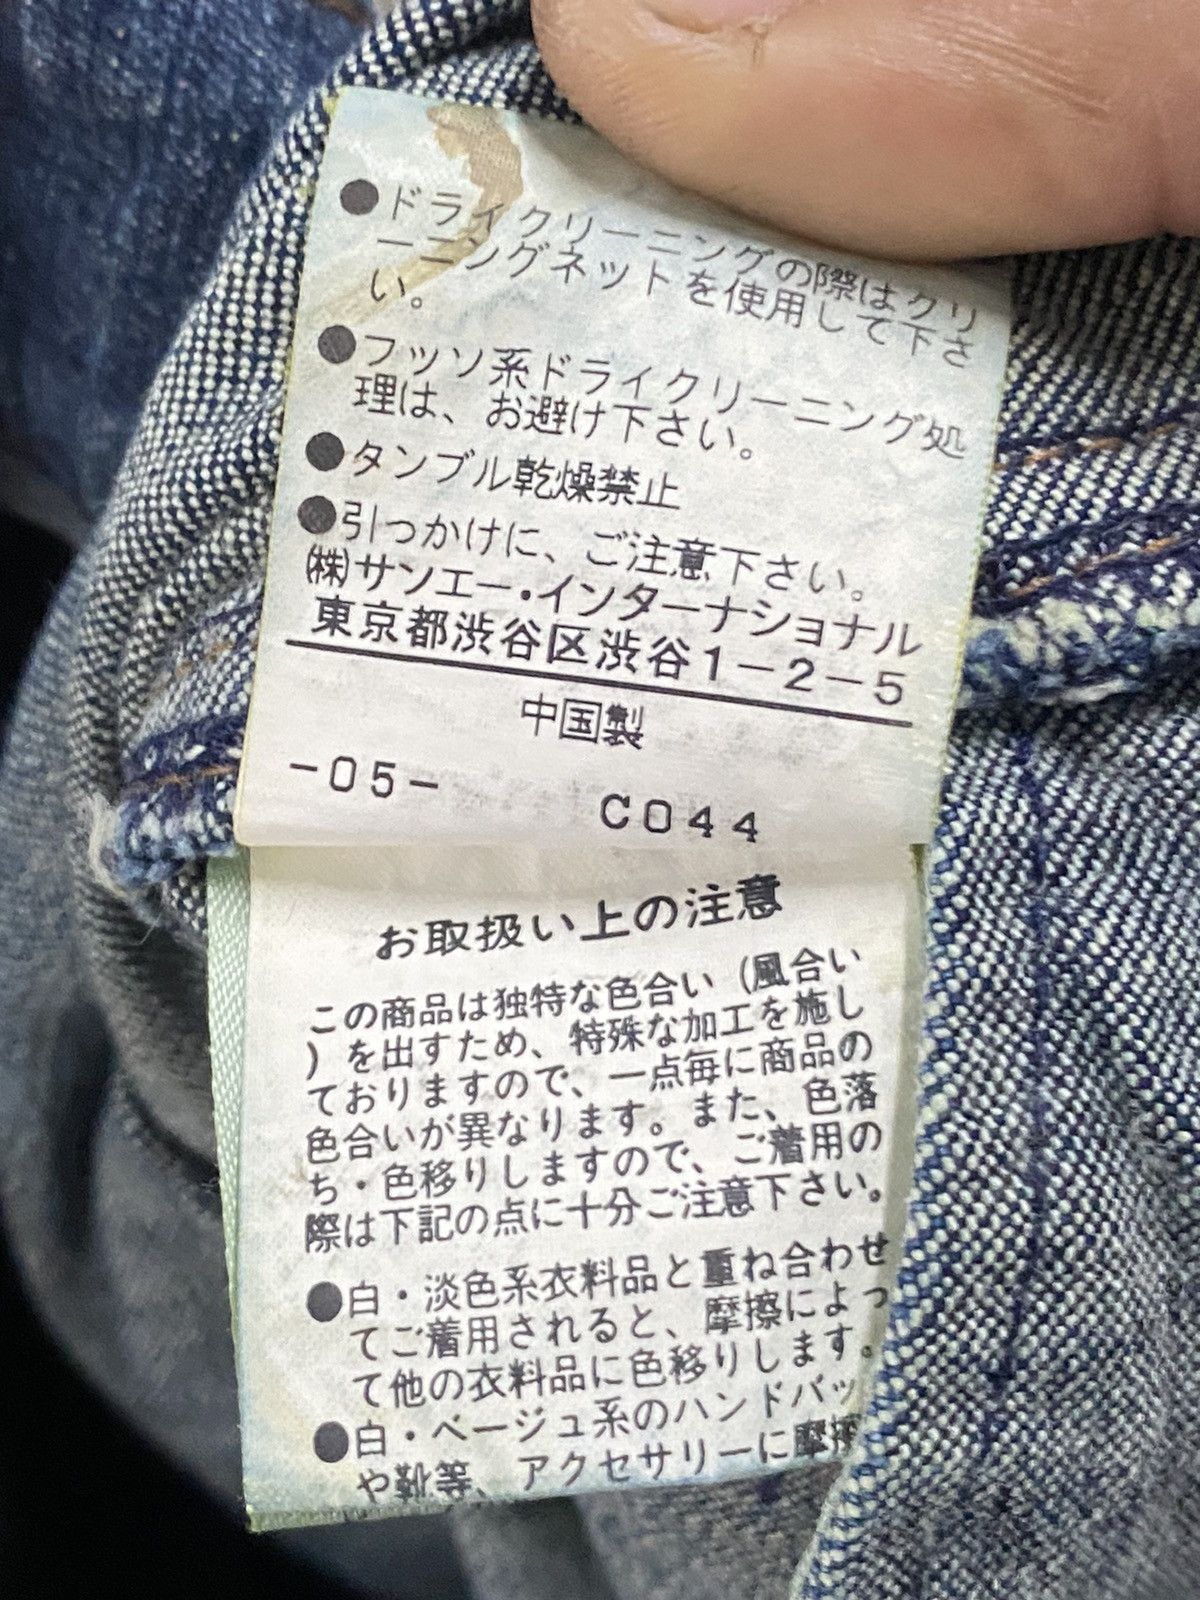 ●ドライクリーニングの際はクリ
ーニングネットを使用して下さ
い。
●フッソ系ドライクリーニング処
理は、お避け下さい。
●タンブル乾燥禁止
●引っかけに、ご注意下さい。
㈱サンエー・インターナショナル
東京都渋谷区渋谷1-2-5
中国製
-05-
C044
お取扱い上の注意
この商品は独特な色合い(風合い
)を出すため、特殊な加工を施し
ておりますので、一点毎に商品の
色合いが異なります。また、色落
ち・色移りしますので、ご着用の
際は下記の点に十分ご注意下さい。
●白・淡色系衣料品と重ね合わせ
てご着用されると、摩擦によっ
て他の衣料品に色移りします。
●白・ベージュ系のハンドバッ
や靴等、アクセサリーに摩擦